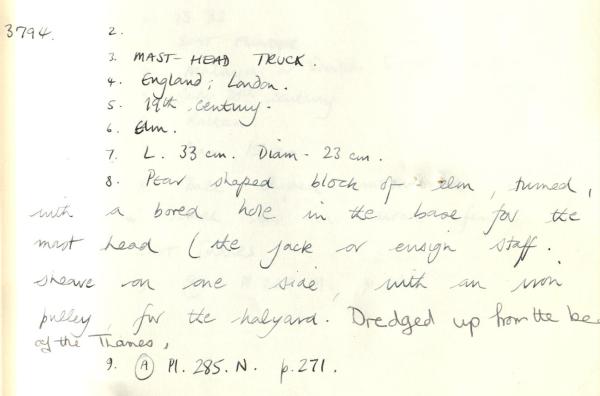 3794. 2.
3. MAST-HEAD TRUCK.
4. England; London.
5. 19th century.
6. Elm.
7. L. 33 cm. Diam- 23 cm.
8. Pear shaped block of elm, turned,
with a bored hole in the base for the
mast head (the jack or ensign staff.
sheave on one side, with an iron
pulley, for the halyard. Dredged up from the be
of the Thames,
9. (A) Pl. 285. N. p. 271.